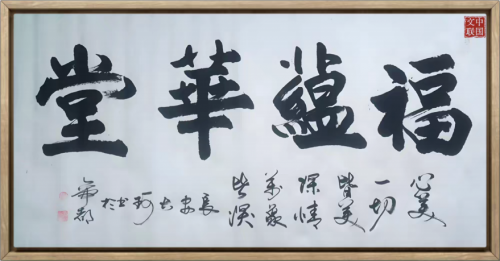 中国文联
福蘊華堂
心美
一切
皆美
深情
萬象
皆深
長
安
帝都